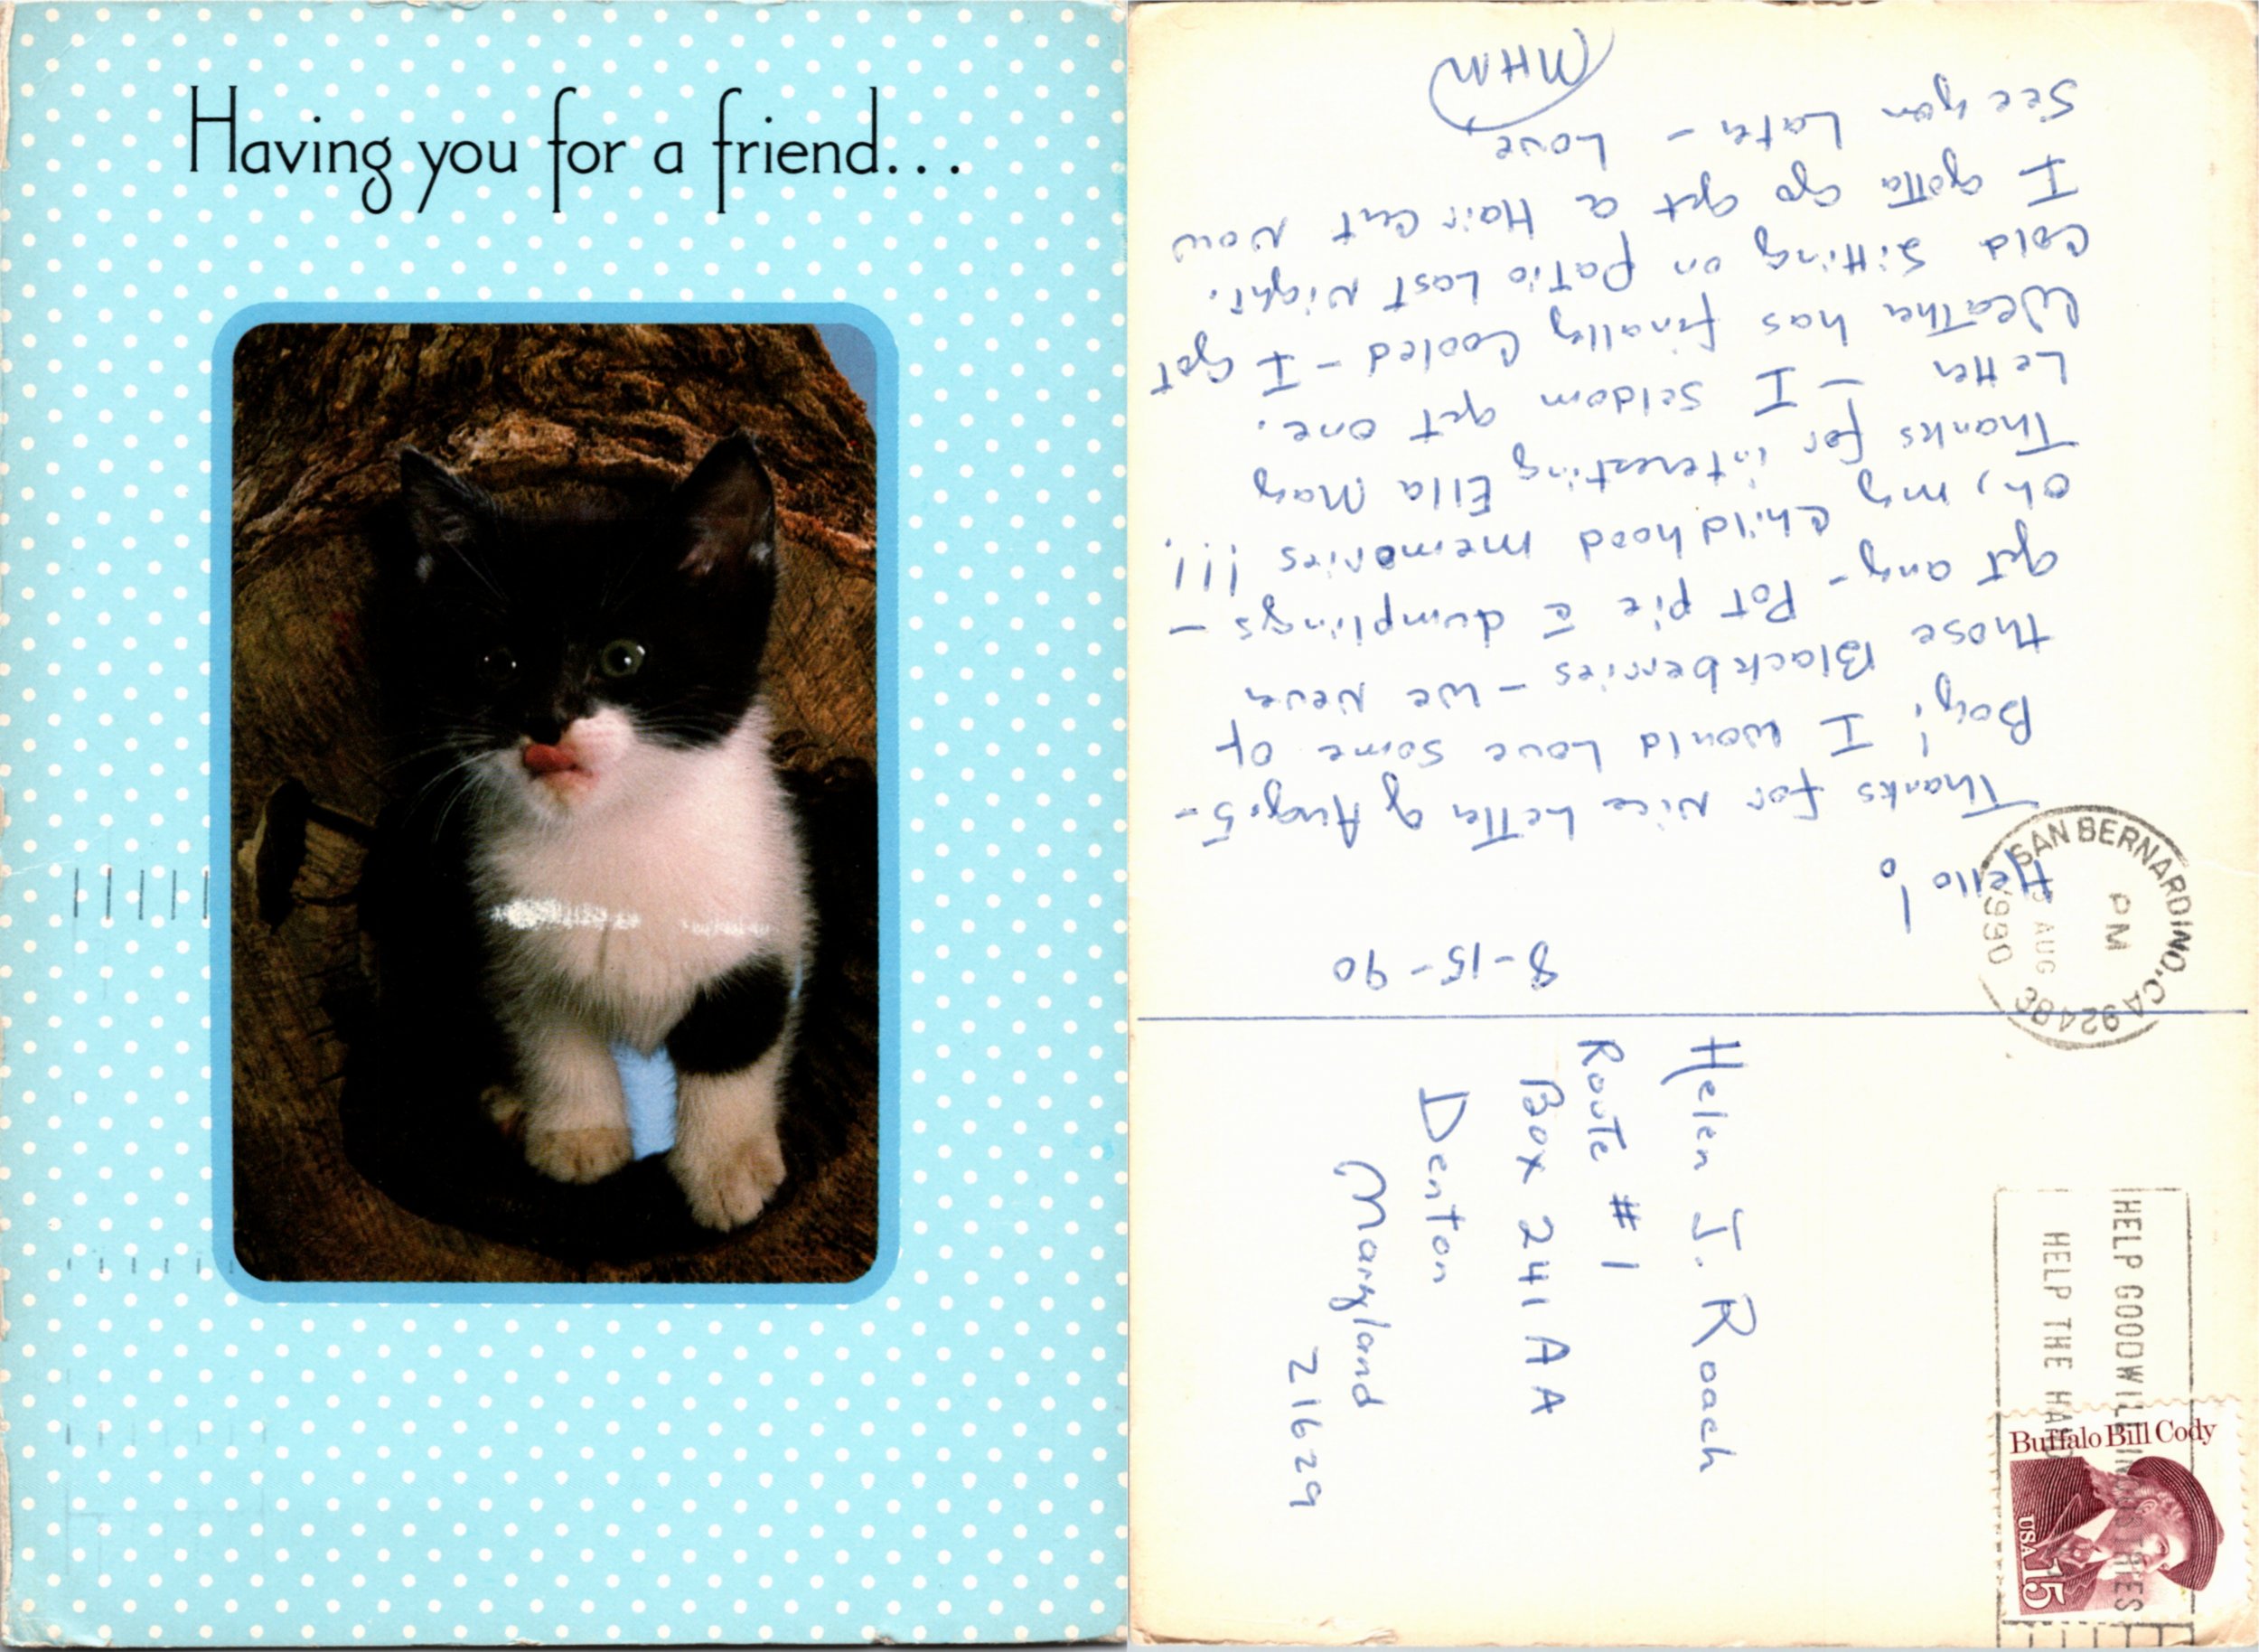 Having you for a friend...
8-15-90
Hello!
Thanks for nice Letter of Aug. 5-
Boy! I would Love some of
those Blackberries - we never
get any - Pot pie c̄ dumplings -
oh, my childhood memories !!!
Thanks for interesting Ella May
Letter - I seldom get one.
Weather has finally cooled - I got
cold sitting on patio Last Night.
I gotta go get a Hair Cut Now
See you Later - Love,
MHM
SAN BERNARDINO, CA
PM
AUG
1990
Helen J. Roach
Route #1
Box 241 AA
Denton
Maryland
21629
HELP GOODWILL INDUSTRIES
HELP THE
Buffalo Bill Cody
USA 15